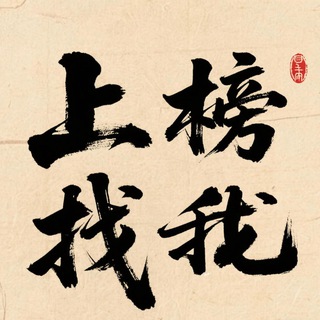 上榜
找我